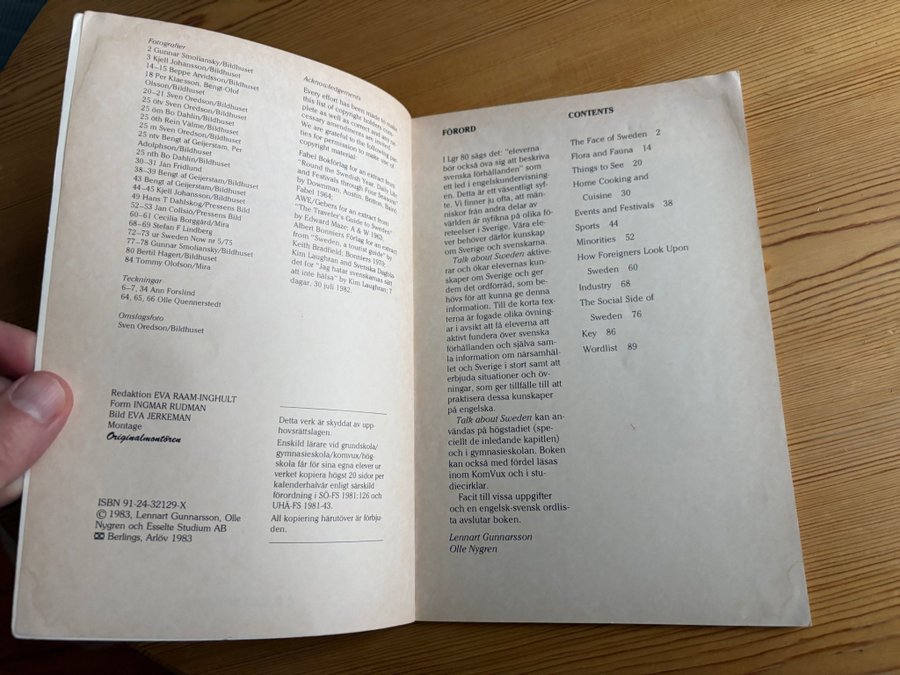 Fotografier
2 Gunnar Smoliansky/Bildhuset
3 Kjell Johansson/Bildhuset
14–15 Beppe Arvidsson/Bildhuset
18 Per Klaesson, Bengt-Olof
Olsson/Bildhuset
20–21 Sven Oredson/Bildhuset
25 ötv Sven Oredson/Bildhuset
25 öm Bo Dahlin/Bildhuset
25 öth Rein Välme/Bildhuset
25 m Sven Oredson/Bildhuset
25 ntv Bengt af Geijerstam, Per
Adolphson/Bildhuset
25 nth Bo Dahlin/Bildhuset
30–31 Jan Fridlund
38–39 Bengt af Geijerstam/Bildhuset
43 Bengt af Geijerstam/Bildhuset
44–45 Kjell Johansson/Bildhuset
49 Hans T Dahlskog/Pressens Bild
52–53 Jan Collsiö/Pressens Bild
60–61 Cecilia Borggård/Mira
68–69 Stefan F Lindberg
72–73 ur Sweden Now nr 5/75
77–78 Gunnar Smoliansky/Bildhuset
80 Bertil Hagert/Bildhuset
84 Tommy Olofson/Mira
Teckningar
6–7, 34 Ann Forslind
64, 65, 66 Olle Quennerstedt
Omslagsfoto
Sven Oredson/Bildhuset
Redaktion EVA RAAM-INGHULT
Form INGMAR RUDMAN
Bild EVA JERKEMAN
Montage
Originalmontören
ISBN 91-24-32129-X
© 1983, Lennart Gunnarsson, Olle
Nygren och Esselte Studium AB
Berlings, Arlöv 1983
Acknowledgements
Every effort has been made to make
this list of copyright holders com-
plete as well as correct and any ne-
cessary amendments are invited.
We are grateful to the following par-
ties for permission to make use of
copyright material:
Fabel Bokförlag for an extract from
"Round the Swedish Year. Daily Life
and Festivals through Four Seasons"
by Downman, Austin, Britton, Baird,
Fabel 1964;
AWE/Gebers for an extract from
"The Traveler's Guide to Sweden"
by Edward Maze; A & W 1962;
Albert Bonniers Förlag for an extract
from "Sweden, a tourist guide" by
Keith Bradfield, Bonniers 1970;
Kim Laughran and Svenska Dagbla-
det for "Jag hatar svenskarnas sätt
att inte hälsa" by Kim Laughran; 7
dagar, 30 juli 1982.
Detta verk är skyddat av upp-
hovsrättslagen.
Enskild lärare vid grundskola/
gymnasieskola/komvux/hög-
skola får för sina egna elever ur
verket kopiera högst 20 sidor per
kalenderhalvår enligt särskild
förordning i SÖ-FS 1981:126 och
UHÄ-FS 1981-43.
All kopiering härutöver är förbju-
den.
FÖRORD
I Lgr 80 sägs det: "eleverna
bör också öva sig att beskriva
svenska förhållanden" som
ett led i engelskundervisning-
en. Detta är ett väsentligt syf-
te. Vi finner ju ofta, att män-
niskor från andra delar av
världen är nyfikna på olika fö-
reteelser i Sverige. Våra ele-
ver behöver därför kunskap
om Sverige och svenskarna.
Talk about Sweden aktive-
rar och ökar elevernas kun-
skaper om Sverige och ger
dem det ordförråd, som be-
hövs för att kunna ge denna
information. Till de korta tex-
terna är fogade olika övning-
ar i avsikt att få eleverna att
aktivt fundera över svenska
förhållanden och själva sam-
la information om närsamhäl-
let och Sverige i stort samt att
erbjuda situationer och öv-
ningar, som ger tillfälle till att
praktisera dessa kunskaper
på engelska.
Talk about Sweden kan an-
vändas på högstadiet (spe-
ciellt de inledande kapitlen)
och i gymnasieskolan. Boken
kan också med fördel läsas
inom KomVux och i stu-
diecirklar.
Facit till vissa uppgifter
och en engelsk-svensk ordlis-
ta avslutar boken.
Lennart Gunnarsson
Olle Nygren
CONTENTS
The Face of Sweden 2
Flora and Fauna 14
Things to See 20
Home Cooking and
Cuisine 30
Events and Festivals 38
Sports 44
Minorities 52
How Foreigners Look Upon
Sweden 60
Industry 68
The Social Side of
Sweden 76
Key 86
Wordlist 89